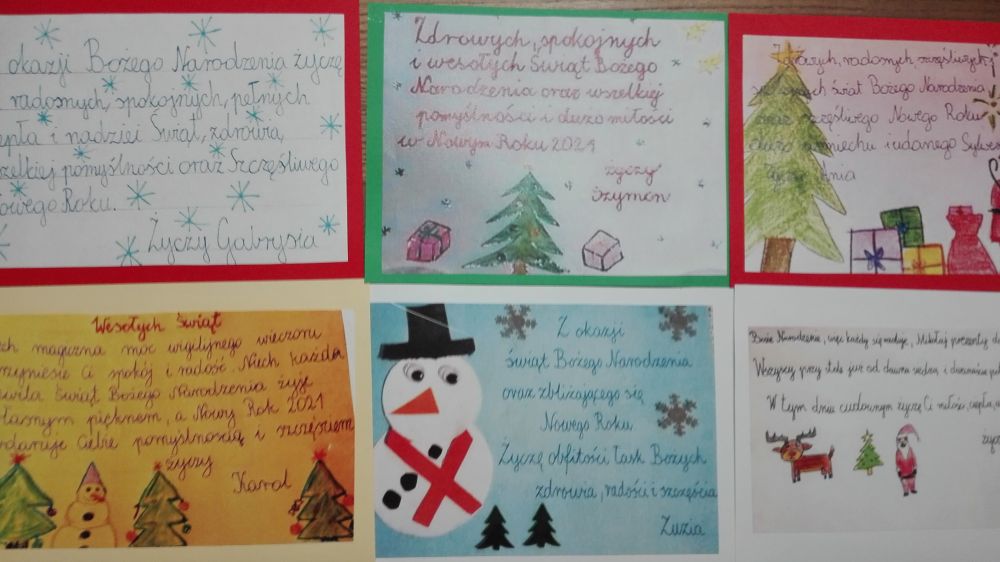 okazji Bożego Narodzenia życzę
radosnych, spokojnych, pełnych
epła i nadziei Świąt, zdrowia,
szelkiej pomyślności oraz Szczęśliwego
owego Roku.
Życzy Gabrysia
Zdrowych, spokojnych
i wesołych Świąt Bożego
Narodzenia oraz wszelkiej
pomyślności i dużo miłości
w Nowym Roku 2021
życzy
Szymon
radosnych, szczęśliwych
świąt Bożego Narodzenia
oraz szczęśliwego Nowego Roku
dużo uśmiechu i udanego Sylwes
Wesołych Świąt
ch magiczna moc wigilijnego wieczoru
zyniesie Ci spokój i radość. Niech każda
wila Świąt Bożego Narodzenia żyje
łasnym pięknem, a Nowy Rok 2021
daruje Ciebie pomyślnością i szczęściem
życzy
Karol
Z okazji
świąt Bożego Narodzenia
oraz zbliżającego się
Nowego Roku
Życzę obfitości Łask Bożych
zdrowia, radości i szczęścia
Zuzia
Boże Narodzenie, więc każdy się raduje, Mikołaj prezenty
Wszyscy przy stole już od dawna siedzą i
W tym dniu cudownym życzę Ci miłości, ciepła,
życ